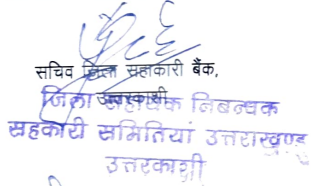 सचिव जिला सहकारी बैंक,
उत्तरकाशी
जिला सहायक निबन्धक
सहकारी समितियां उत्तराखण्ड
उत्तरकाशी